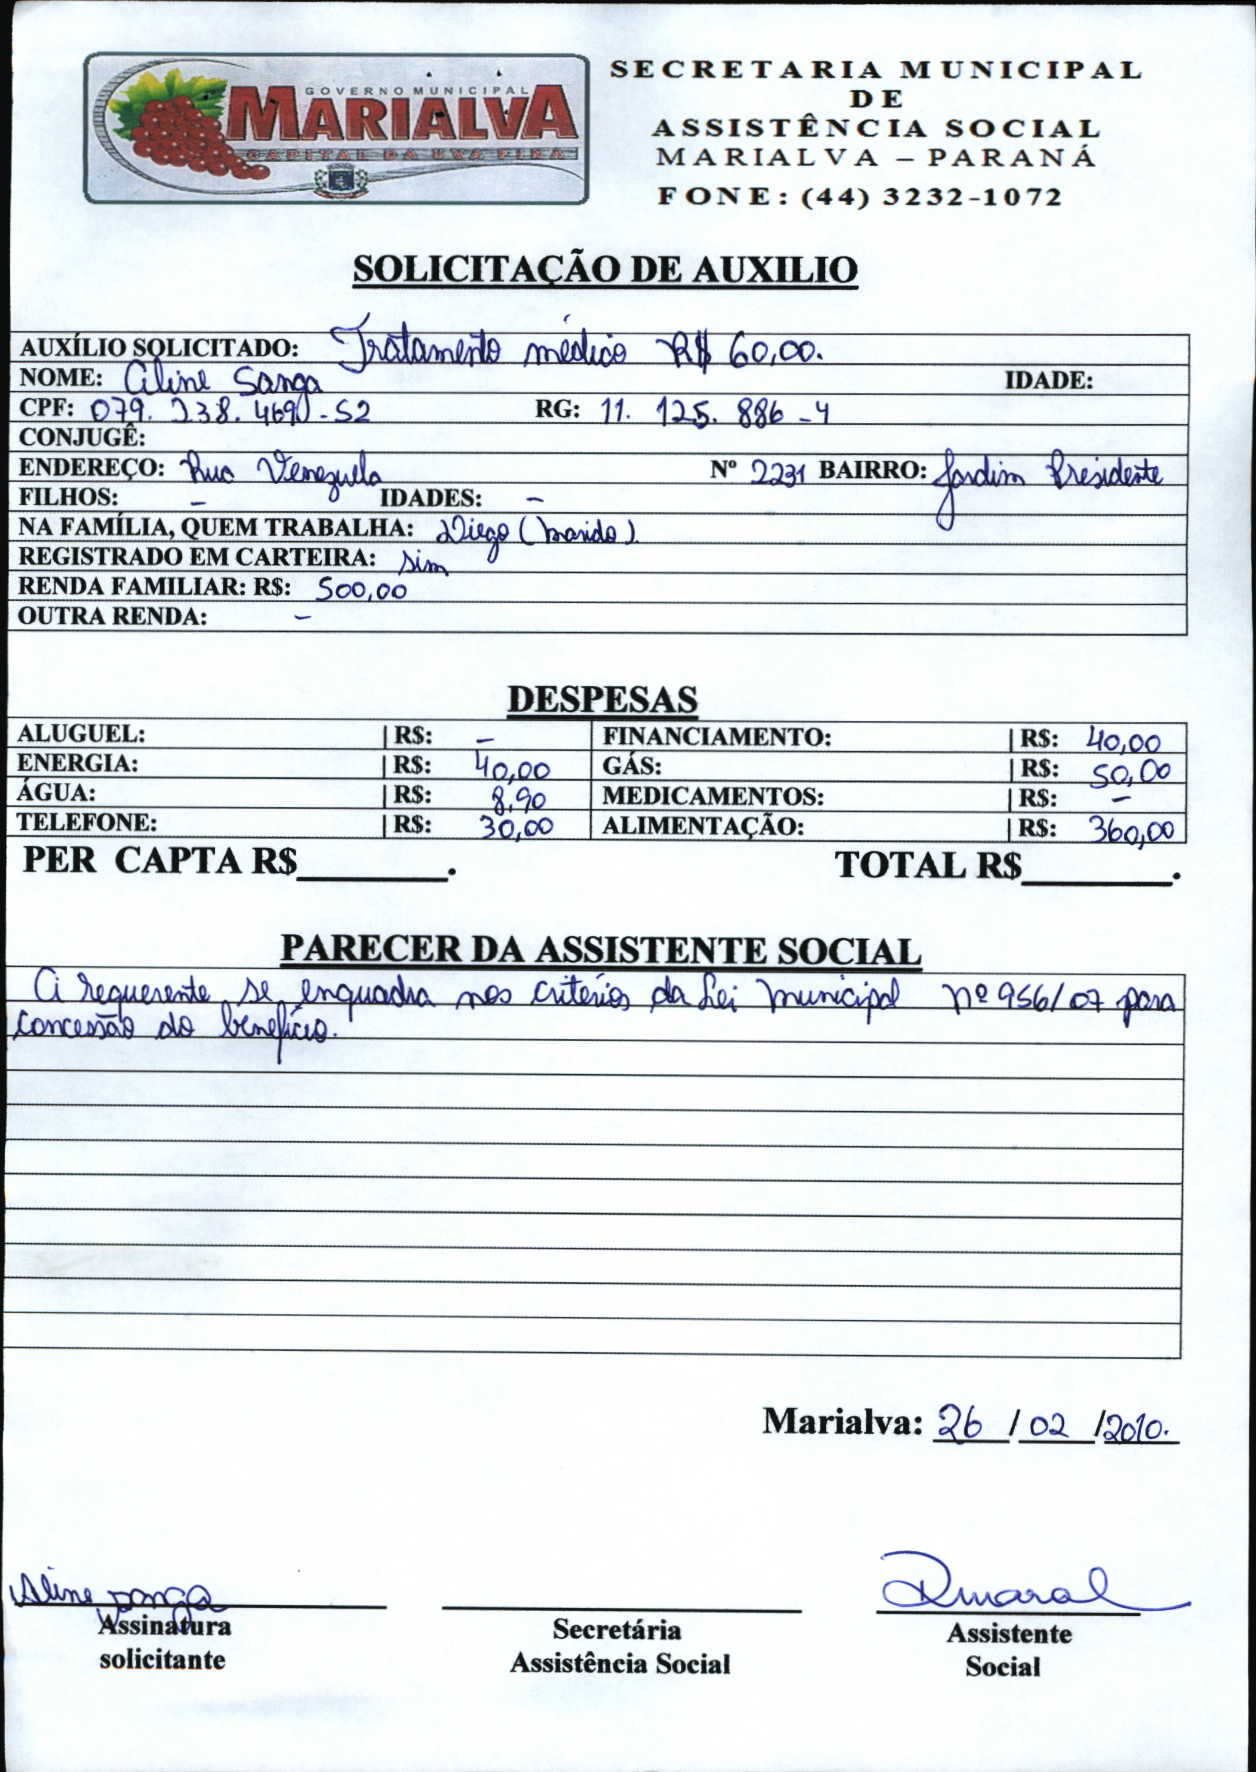 GOVERNO MUNICIPAL
MARIALVA
CAPITAL DA UVA FINA
SECRETARIA MUNICIPAL
DE
ASSISTÊNCIA SOCIAL
MARIALVA – PARANÁ
FONE: (44) 3232-1072
SOLICITAÇÃO DE AUXILIO
AUXÍLIO SOLICITADO: Tratamento médico R$ 60,00.
NOME: Aline Sanga IDADE:
CPF: 079. 238. 469 - 52 RG: 11. 125. 886 - 4
CONJUGÊ:
ENDEREÇO: Rua Venezuela Nº 2231 BAIRRO: Jardim Presidente
FILHOS: - IDADES: -
NA FAMÍLIA, QUEM TRABALHA: Diego (marido)
REGISTRADO EM CARTEIRA: sim
RENDA FAMILIAR: R$: 500,00
OUTRA RENDA: -
DESPESAS
ALUGUEL: | R$: - FINANCIAMENTO: | R$: 40,00
ENERGIA: | R$: 40,00 GÁS: | R$: 50,00
ÁGUA: | R$: 8,90 MEDICAMENTOS: | R$: -
TELEFONE: | R$: 30,00 ALIMENTAÇÃO: | R$: 360,00
PER CAPTA R$________. TOTAL R$________.
PARECER DA ASSISTENTE SOCIAL
A requerente se enquadra nos critérios da Lei municipal nº 956/07 para
concessão do benefício.
Marialva: 26 / 02 /2010.
Aline Sanga
Assinatura
solicitante
Secretária
Assistência Social
Assistente
Social